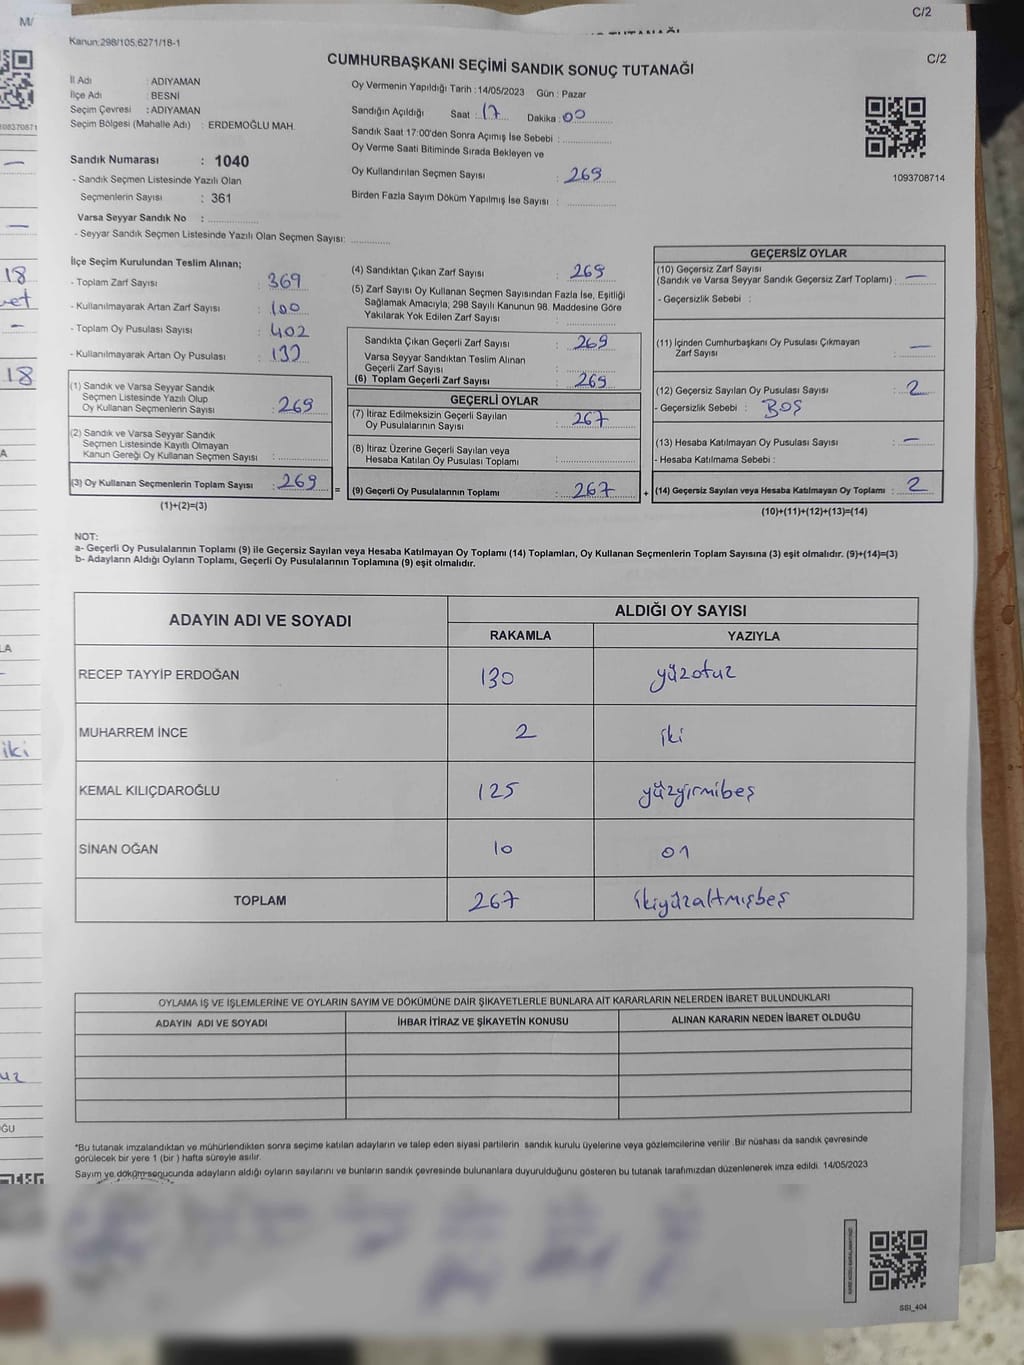 C/2
M/
Kanun:298/105;6271/18-1
C/2
CUMHURBAŞKANI SEÇİMİ SANDIK SONUÇ TUTANAĞI
İl Adı : ADIYAMAN
İlçe Adı : BESNİ
Seçim Çevresi : ADIYAMAN
Seçim Bölgesi (Mahalle Adı) : ERDEMOĞLU MAH.
Sandık Numarası : 1040
- Sandık Seçmen Listesinde Yazılı Olan
Seçmenlerin Sayısı : 361
Varsa Seyyar Sandık No : ..............
- Seyyar Sandık Seçmen Listesinde Yazılı Olan Seçmen Sayısı: ...........
Oy Vermenin Yapıldığı Tarih : 14/05/2023 Gün : Pazar
Sandığın Açıldığı Saat : 17 Dakika : 00
Sandık Saat 17:00'den Sonra Açımış İse Sebebi : ..............
Oy Verme Saati Bitiminde Sırada Bekleyen ve
Oy Kullandırılan Seçmen Sayısı : 269
Birden Fazla Sayım Döküm Yapılmış İse Sayısı : ..............
1093708714
İlçe Seçim Kurulundan Teslim Alınan;
- Toplam Zarf Sayısı : 369
- Kullanılmayarak Artan Zarf Sayısı : 100
- Toplam Oy Pusulası Sayısı : 402
- Kullanılmayarak Artan Oy Pusulası : 133
(1) Sandık ve Varsa Seyyar Sandık
Seçmen Listesinde Yazılı Olup
Oy Kullanan Seçmenlerin Sayısı : 269
(2) Sandık ve Varsa Seyyar Sandık
Seçmen Listesinde Kayıtlı Olmayan
Kanun Gereği Oy Kullanan Seçmen Sayısı : ..............
(3) Oy Kullanan Seçmenlerin Toplam Sayısı : 269
(1)+(2)=(3)
=
(4) Sandıktan Çıkan Zarf Sayısı : 269
(5) Zarf Sayısı Oy Kullanan Seçmen Sayısından Fazla İse, Eşitliği
Sağlamak Amacıyla, 298 Sayılı Kanunun 98. Maddesine Göre
Yakılarak Yok Edilen Zarf Sayısı : ..............
Sandıkta Çıkan Geçerli Zarf Sayısı : 269
Varsa Seyyar Sandıktan Teslim Alınan
Geçerli Zarf Sayısı : ..............
(6) Toplam Geçerli Zarf Sayısı : 269
GEÇERLİ OYLAR
(7) İtiraz Edilmeksizin Geçerli Sayılan
Oy Pusulalarının Sayısı : 267
(8) İtiraz Üzerine Geçerli Sayılan veya
Hesaba Katılan Oy Pusulası Toplamı : ..............
(9) Geçerli Oy Pusulalarının Toplamı : 267
+
GEÇERSİZ OYLAR
(10) Geçersiz Zarf Sayısı
(Sandık ve Varsa Seyyar Sandık Geçersiz Zarf Toplamı) : —
- Geçersizlik Sebebi :
(11) İçinden Cumhurbaşkanı Oy Pusulası Çıkmayan
Zarf Sayısı : —
(12) Geçersiz Sayılan Oy Pusulası Sayısı : 2
- Geçersizlik Sebebi : BOŞ
(13) Hesaba Katılmayan Oy Pusulası Sayısı : —
- Hesaba Katılmama Sebebi :
(14) Geçersiz Sayılan veya Hesaba Katılmayan Oy Toplamı : 2
(10)+(11)+(12)+(13)=(14)
NOT:
a- Geçerli Oy Pusulalarının Toplamı (9) ile Geçersiz Sayılan veya Hesaba Katılmayan Oy Toplamı (14) Toplamları, Oy Kullanan Seçmenlerin Toplam Sayısına (3) eşit olmalıdır. (9)+(14)=(3)
b- Adayların Aldığı Oyların Toplamı, Geçerli Oy Pusulalarının Toplamına (9) eşit olmalıdır.
ADAYIN ADI VE SOYADI ALDIĞI OY SAYISI
RAKAMLA YAZIYLA
RECEP TAYYİP ERDOĞAN 130 yüzotuz
MUHARREM İNCE 2 iki
KEMAL KILIÇDAROĞLU 125 yüzyirmibeş
SİNAN OĞAN 10 on
TOPLAM 267 ikiyüzaltmışbeş
OYLAMA İŞ VE İŞLEMLERİNE VE OYLARIN SAYIM VE DÖKÜMÜNE DAİR ŞİKAYETLERLE BUNLARA AİT KARARLARIN NELERDEN İBARET BULUNDUKLARI
ADAYIN ADI VE SOYADI İHBAR İTİRAZ VE ŞİKAYETİN KONUSU ALINAN KARARIN NEDEN İBARET OLDUĞU
*Bu tutanak imzalandıktan ve mühürlendikten sonra seçime katılan adayların ve talep eden siyasi partilerin sandık kurulu üyelerine veya gözlemcilerine verilir .Bir nüshası da sandık çevresinde
görülecek bir yere 1 (bir ) hafta süreyle asılır.
Sayım ve döküm sonucunda adayların aldığı oyların sayılarını ve bunların sandık çevresinde bulunanlara duyurulduğunu gösteren bu tutanak tarafımızdan düzenlenerek imza edildi. 14/05/2023
SSI_404
18
18
iki